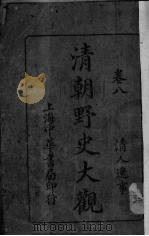 卷八
清人逸事
清朝野史大觀
上海中華書局印行